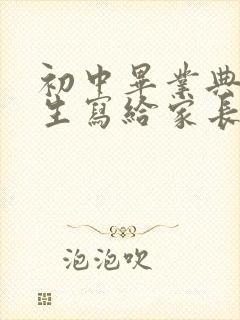 初中畢業典
生寫給家長
泡泡吹